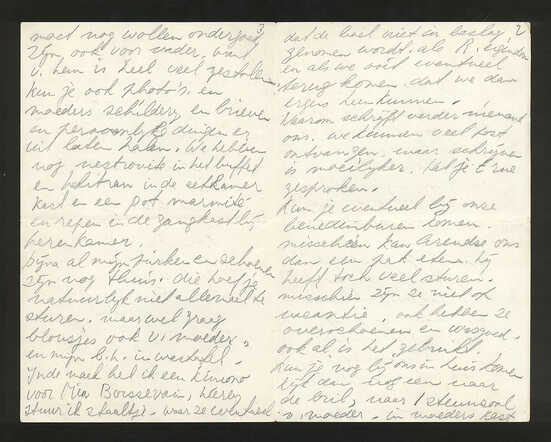 3
moet nog wollen ondergoed
zijn ook voor vader, van
v. hem is heel veel gestolen.
kun je ook photo's, en
moeders schilderij en brieven
en persoonlijke dingen er
uit laten halen. We hebben
nog nestrovite in het buffet
en in de eetkamer
kast en een pot marmite
en repen in de gangkast bij
herenkamer.
Bijna al mijn jurken en schoenen
zijn nog thuis. die hoef je
natuurlijk niet allemaal te
sturen. maar wel graag
blousjes ook v. moeder.
en mijn b.h. in wastafel.
In de naad heb ik een kimono
voor Mia Boissevain,
stuur ik staaltje. waar ze eventueel
2
dat de boel niet in beslag
genomen wordt. als R.
en als we ooit eventueel
terug komen. dat we dan
ergens heen kunnen.
Waarom schrijft verder niemand
ons. we kunnen veel post
ontvangen. maar schrijven
is moeilijker. heb je
gesproken.
Kun je eventueel bij onze
benedenburen komen.
misschien kan Arendse ons
dan een pak eten. hij
heeft toch veel sturen.
misschien zijn ze niet op
vacantie. ook hebben ze
overschoenen en wasgoed.
ook al is het gebruikt.
Kun je nog bij ons in huis komen
kijk dan nog eens naar
de bril, naar 1 steunzool
v. moeder. in moeders kast